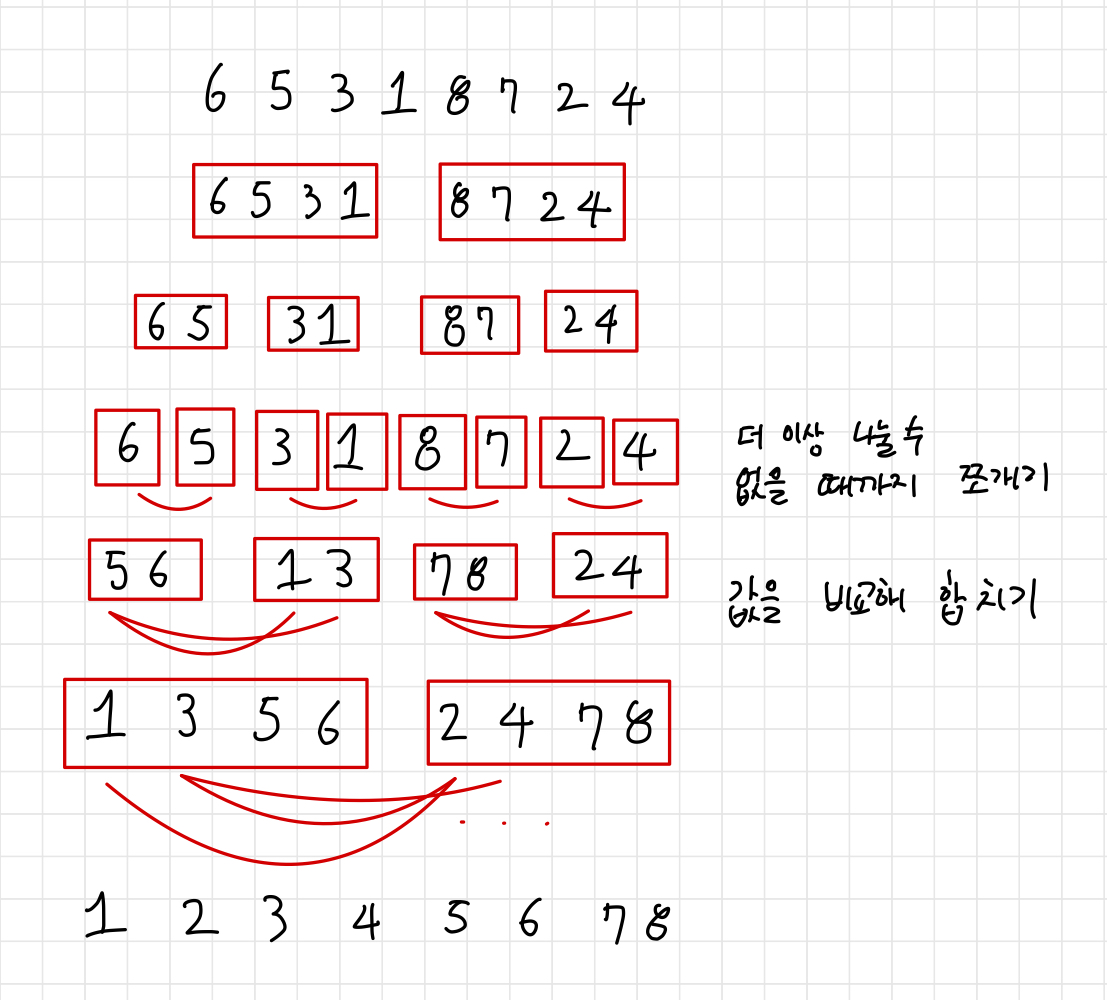 6 5 3 1 8 7 2 4
6 5 3 1 8 7 2 4
6 5 3 1 8 7 2 4
6 5 3 1 8 7 2 4
더 이상 나눌 수
없을 때까지 쪼개기
5 6 1 3 7 8 2 4
값을 비교해 합치기
1 3 5 6 2 4 7 8
1 2 3 4 5 6 7 8